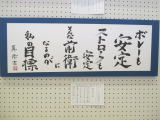 ボレーも
安定
ストロークも
安定
そんな前衛に
なるのが
私の目標